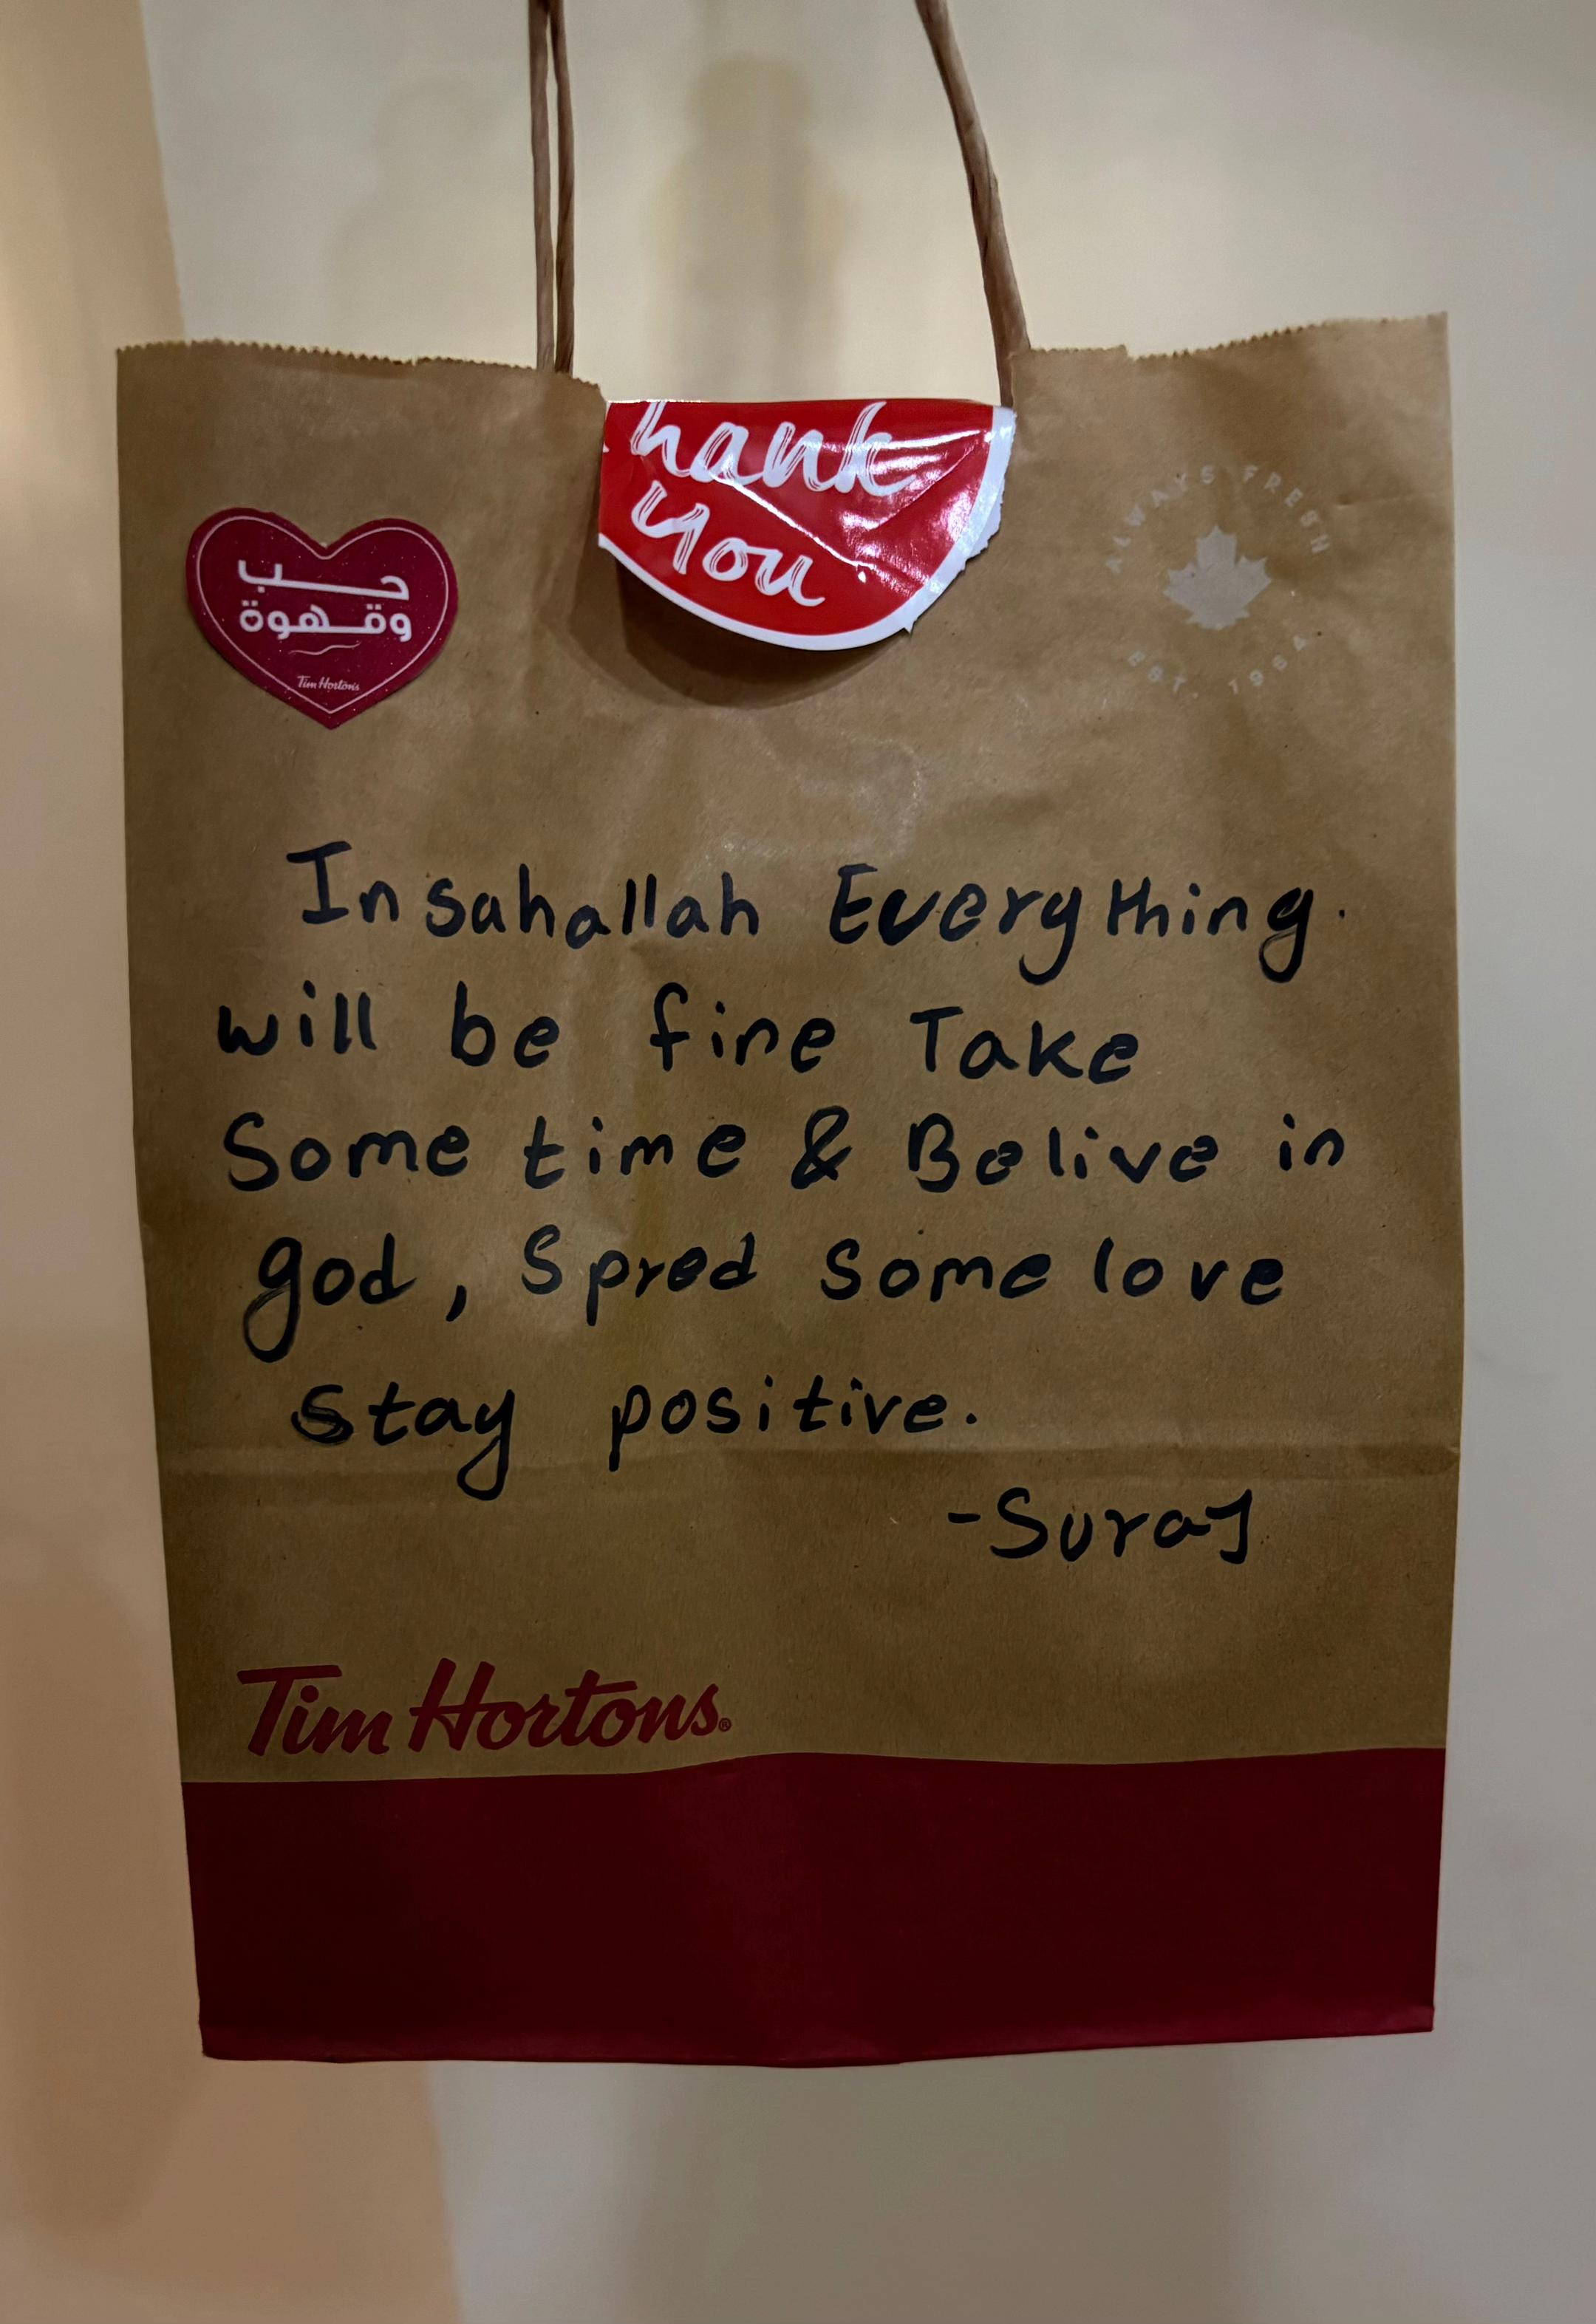 hank
you
حب
وقهوة
Tim Hortons
ALWAYS FRESH
EST. 1964
Insahallah Everything.
will be fine Take
Some time & Belive in
god, Spred some love
stay positive.
-Suraj
Tim Hortons®